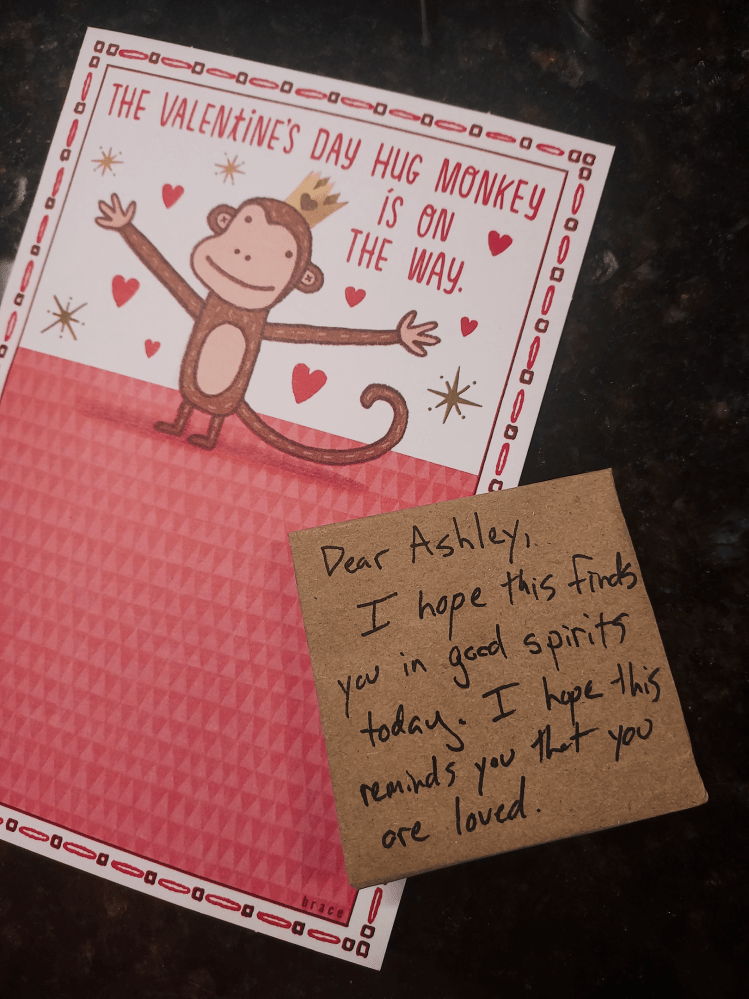 THE VALENTINE'S DAY HUG MONKEY
IS ON
THE WAY.
Dear Ashley,
I hope this finds
you in good spirits
today. I hope this
reminds you that you
are loved.
brace